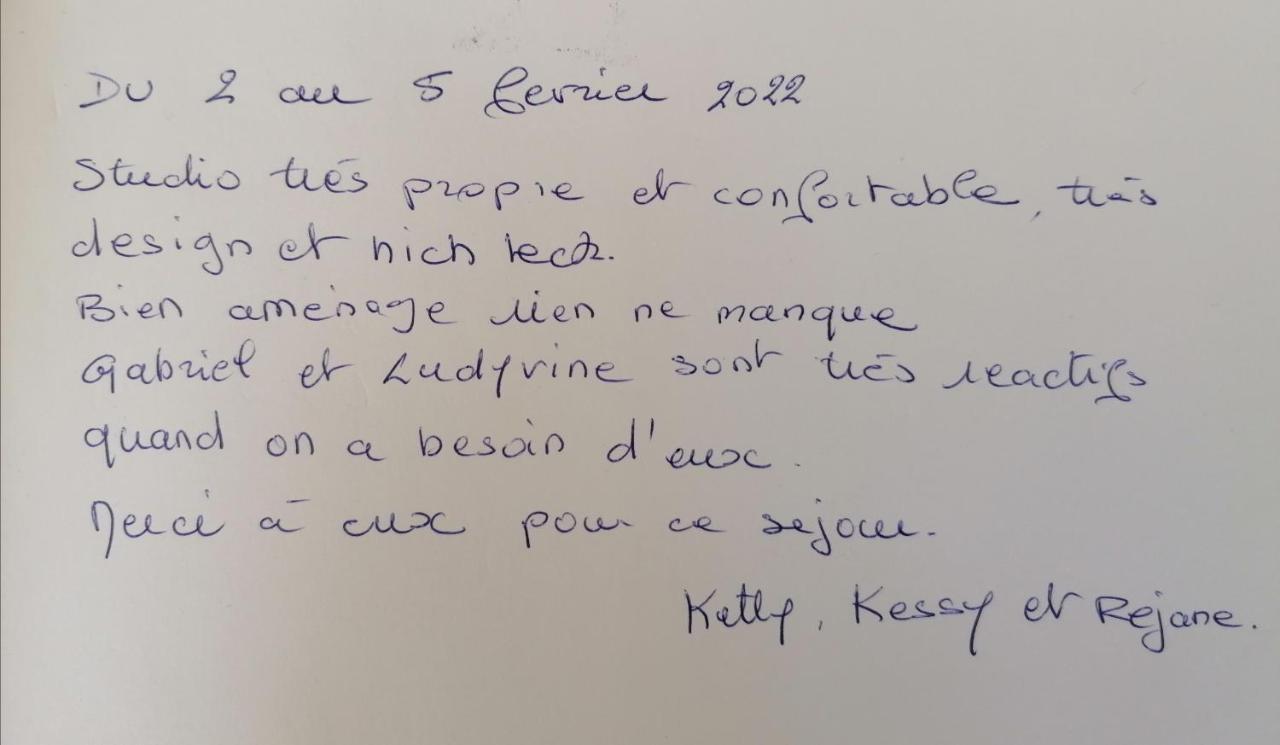 DU 2 au 5 fevrier 2022
Studio très propre et confortable, très
design et hich tech.
Bien aménage rien ne manque
Gabriel et Ludyvine sont très reactifs
quand on a besoin d'eux.
Merci à eux pour ce sejour.
Ketty, Kessy et Rejane.